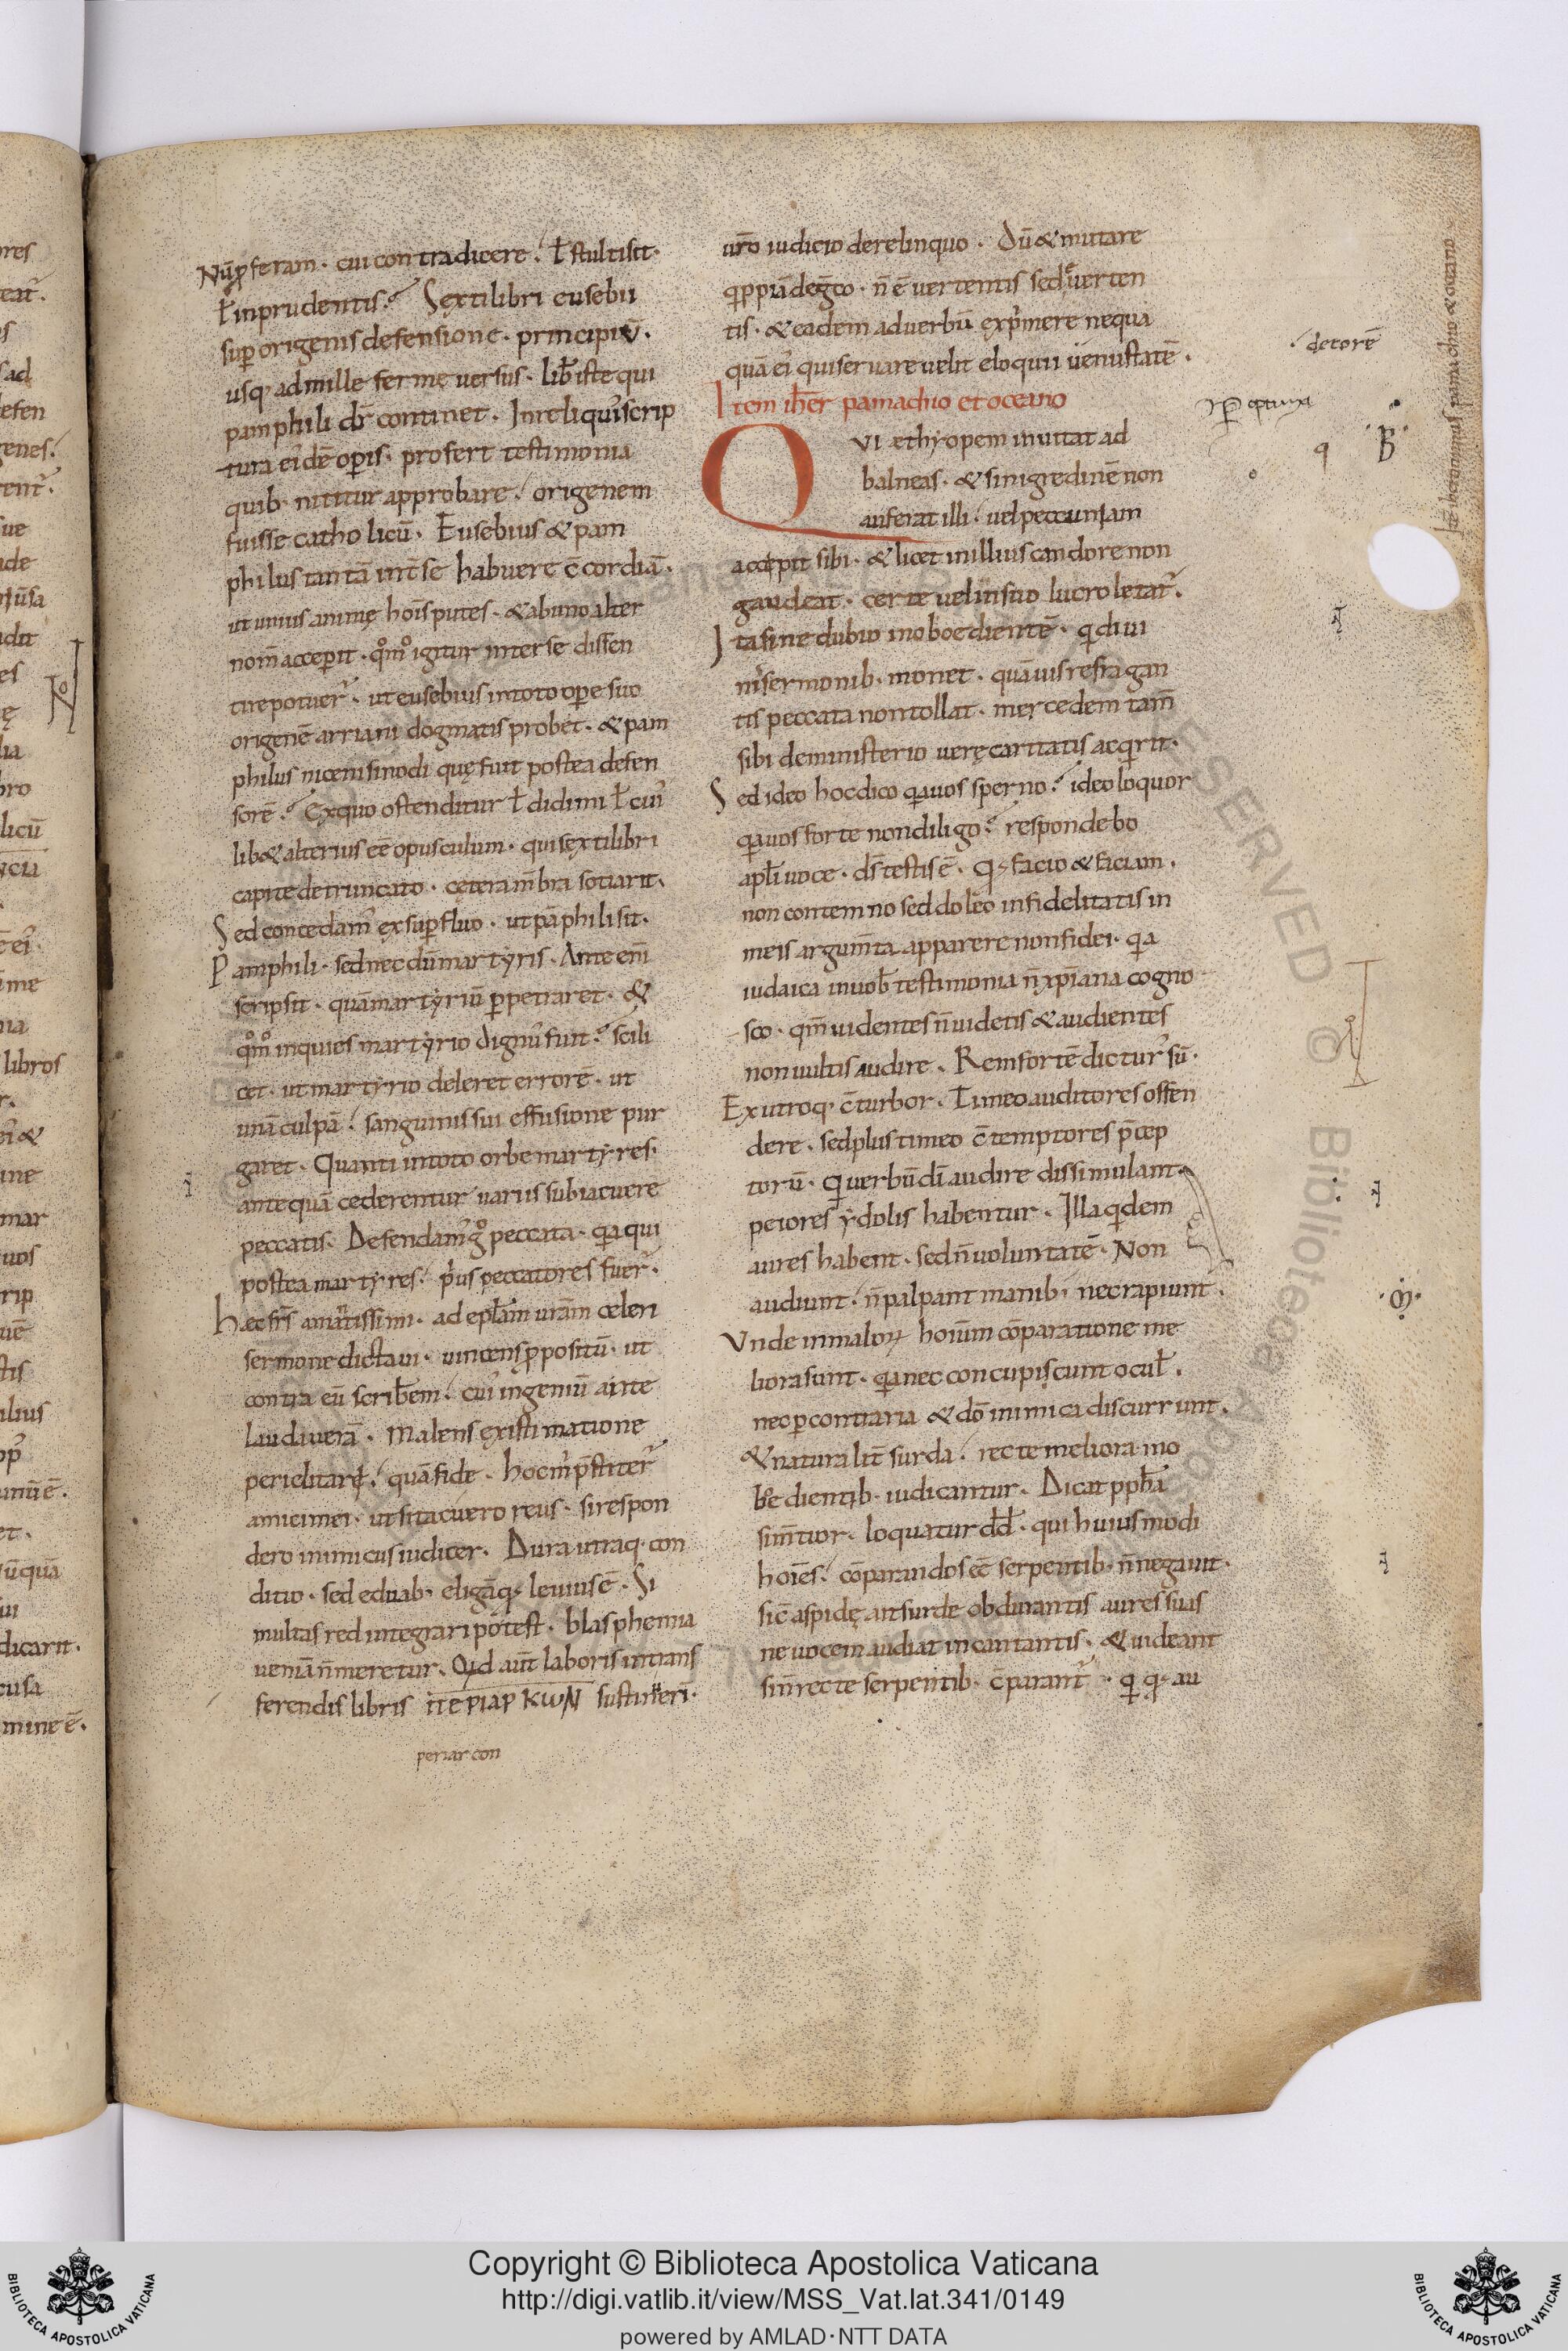 Nūpferam. cui contradicere. ł stultisit.
ł inprudentis. Sextilibri eusebii
sup origenis defensione. principiū.
usq. admille ferme uersus. lib iste qui
pamphili dr continet. In reliqui scrip
tura eidē opis. profert testimonia
quib. nititur approbare. origenem
fuisse catho licū. Eusebius & pam
philus tantā int se habuere c̄ cordiā.
ut unius animę hois putes. & ab uno alter
nom̄ accepit. qm̊o igitur inter se dissen
tire potuer. ut eusebius in toto ope suo
origenē arriani dogmatis probet. & pam
philus niceni sinodi quę fuit postea defen
sorē. Exquo ostenditur ł didimi ł cui
lib& alterius eē opusculum. qui sexti libri
capite detruncato. cetera m̄bra sotiarit.
Sed concedam ex supfluo. ut pāphili sit.
Pamphili. sed nec dū martyris. Ante eni
scripsit. quā martyriū ppetraret. &
qm̊o inquies martyrio dignu fuit. scili
cet. ut martyrio deleret errorē. ut
unā culpā. sanguinis sui effusione pur
garet. Quanti in toto orbe martyres.
ante quā cederentur uariis subiacuere
peccatis. Defendam g̊ peccata. qa qui
postea martyres. pus peccatores fuer.
Hec frs amatissimi. ad epłam uram celeri
sermone dictaui. uincens ppositū. ut
contra eū scribem. cui ingeniū ante
laudauerā. Malens existimatione
periclitari. quā fide. hoc m pstiter
amici mei. ut si tacuero reus. si respon
dero inimicus iudicer. Dura utraq. con
ditio. sed eduab. eligā q leuius ē. Si
multas redintegrari potest. blasphemia
ueniā n̄ meretur. Qid aut laboris in trans
ferendis libris ΠΕΡΙΑΡΚωΝ sustinueri.
periarcon
uro iudicio derelinquo. Dū & mutare
qppiā de gco. n̄ ē uertentis sed euerten
tis. & eadem ad uerbū expmere nequa
quā ei qui seruare uelit eloquii uenustatē.
Item iher pamachio et oceano
QVI æthyopem inuitat ad
balneas. & si nigredinē non
auferat illi. uel peccuniam
accepit sibi. & licet in illius candore non
gaudeat. certe uel in suo lucro letat.
Ita sine dubio inoboedientē. q diui
nis sermonib. monet. quāuis refragan
tis peccata non tollat. mercedem tam̄
sibi de ministerio uerę caritatis acqrit.
Sed ideo hoc dico qa uos sperno. ideo loquor
qa uos forte non diligo. respondebo
apłi uoce. ds testis ē. Q facio & faciam.
non contemno sed doleo infidelitatis in
meis argum̄ta apparere non fidei. qa
iudaica in uob testimonia n̄ xpiana cogno
sco. qm̄ uidentes n̄ uidetis & audientes
non uultis audire. Rem fortē dictur sū.
Ex utroq. c̄turbor. Timeo auditores offen
dere. sed plus timeo c̄temptores pcep
torū. Qi uerbū di audire dissimulant
peiores ydolis habentur. Illa qidem
aures habent. sed n̄ uoluntatē. Non
audiunt. n̄ palpant manib. nec rapiunt.
Vnde in maloꝝ hoium cōparatione me
liora sunt. qa nec concupiscunt ocuł.
nec p contraria & dō inimica discurrunt.
& naturalit surda. recte meliora ino
boedientib. iudicantur. Dicat pphā
sim̄tior. loquatur dd. qui huiusmodi
hoiēs. cōparandos eē serpentib. n̄ negauit.
sic aspidę aut surdę obdurantis aures suas
ne uocem audiat incantantis. & uideant
si n̄ recte serpentib. c̄parant. q q au
detorē
Copyright © Biblioteca Apostolica Vaticana
http://digi.vatlib.it/view/MSS_Vat.lat.341/0149
powered by AMLAD·NTT DATA
BIBLIOTECA APOSTOLICA VATICANA
BIBLIOTECA APOSTOLICA VATICANA